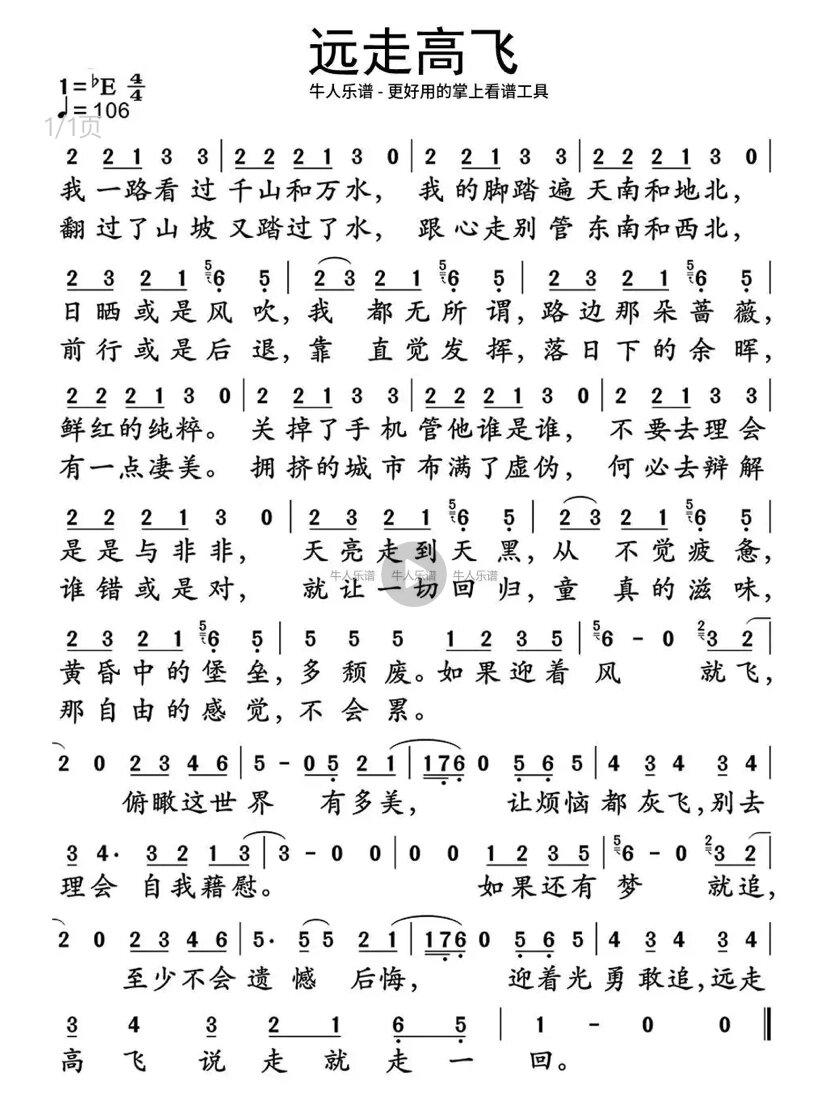 远走高飞
牛人乐谱 - 更好用的掌上看谱工具
1=♭E 4/4
♩=106
1/1页
2 2 1 3 3 | 2 2 2 1 3 0 | 2 2 1 3 3 | 2 2 2 1 3 0 |
我一路看过千山和万水，我的脚踏遍天南和地北，
翻过了山坡又踏过了水，跟心走别管东南和西北，
2 3 2 1 5 6 5 | 2 3 2 1 5 6 5 | 2 3 2 1 5 6 5 |
日晒或是风吹，我都无所谓，路边那朵蔷薇，
前行或是后退，靠直觉发挥，落日下的余晖，
2 2 2 1 3 0 | 2 2 2 1 3 3 | 2 2 2 1 3 0 | 2 2 1 3 3 |
鲜红的纯粹。关掉了手机管他谁是谁，不要去理会
有一点凄美。拥挤的城市布满了虚伪，何必去辩解
2 2 2 1 3 0 | 2 3 2 1 5 6 5 | 2 3 2 1 5 6 5 |
是是与非非，天亮走到天黑，从不觉疲惫，
谁错或是对，就让一切回归，童真的滋味，
牛人乐谱 牛人乐谱 牛人乐谱
2 3 2 1 5 6 5 | 5 5 5 - | 1 2 3 5 | 5 6 - 0 2 3 2 |
黄昏中的堡垒，多颓废。如果迎着风就飞，
那自由的感觉，不会累。
2 0 2 3 4 6 | 5 - 0 5 2 1 | 1 7 6 0 5 6 5 | 4 3 4 3 4 |
俯瞰这世界有多美，让烦恼都灰飞，别去
3 4· 3 2 1 3 | 3 - 0 0 | 0 0 1 2 3 5 | 5 6 - 0 2 3 2 |
理会自我藉慰。如果还有梦就追，
2 0 2 3 4 6 | 5· 5 5 2 1 | 1 7 6 0 5 6 5 | 4 3 4 3 4 |
至少不会遗憾后悔，迎着光勇敢追，远走
3 4 3 2 1 6 5 | 1 - 0 0 ‖
高飞说走就走一回。